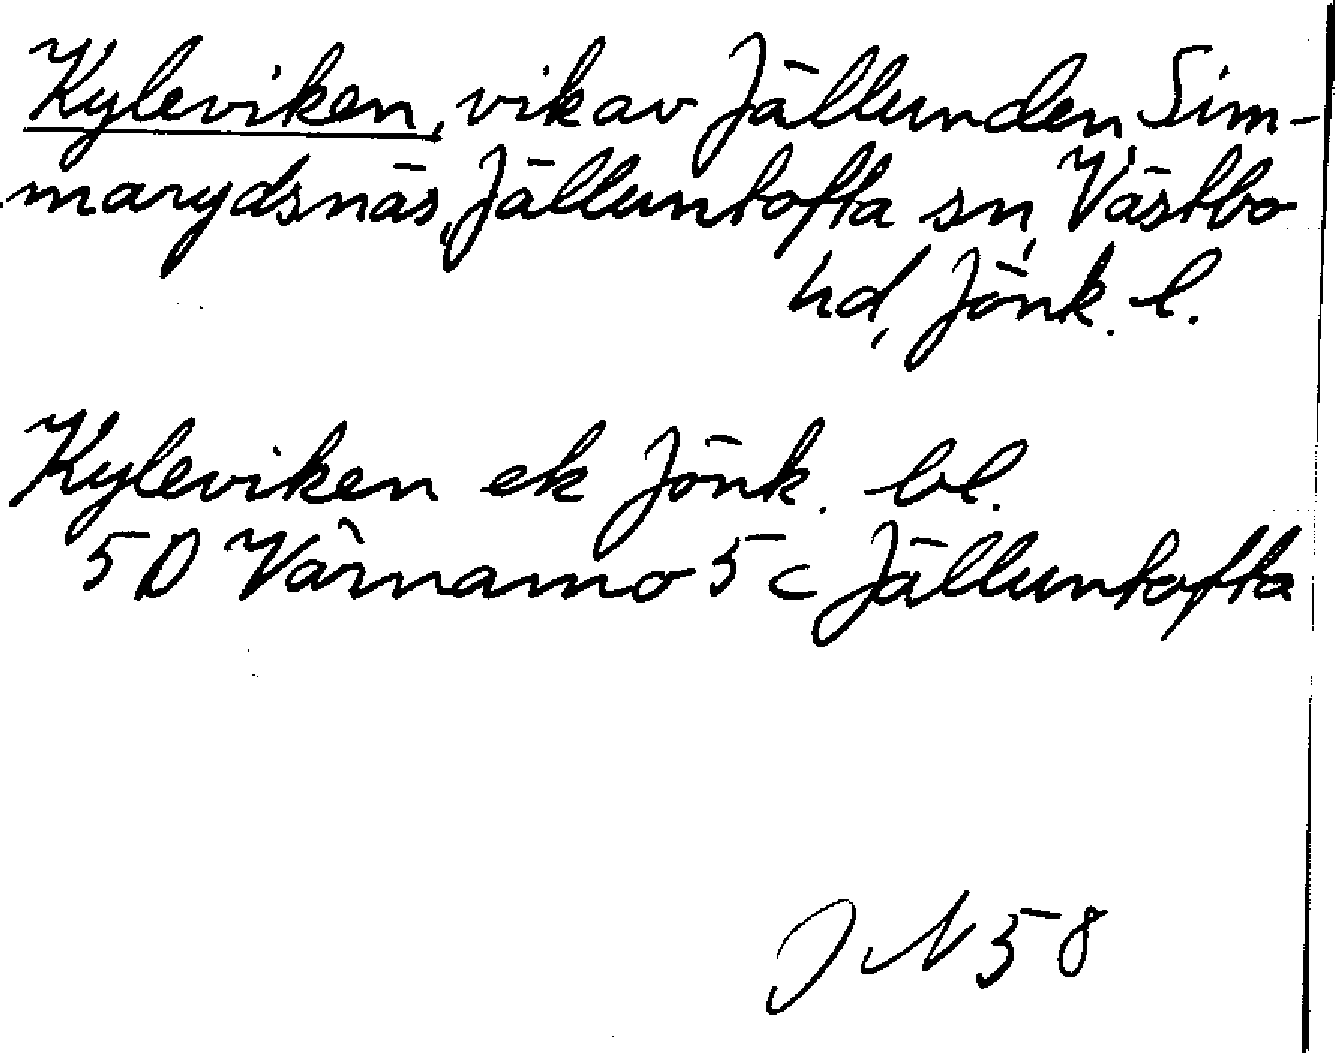 Kyleviken, vik av Jällunden Sim-
marydsnäs, Jälluntofta sn, Västbo
hd, Jönk. l.
Kyleviken ek Jönk. bl.
5D Värnamo 5c Jälluntofta
JN58